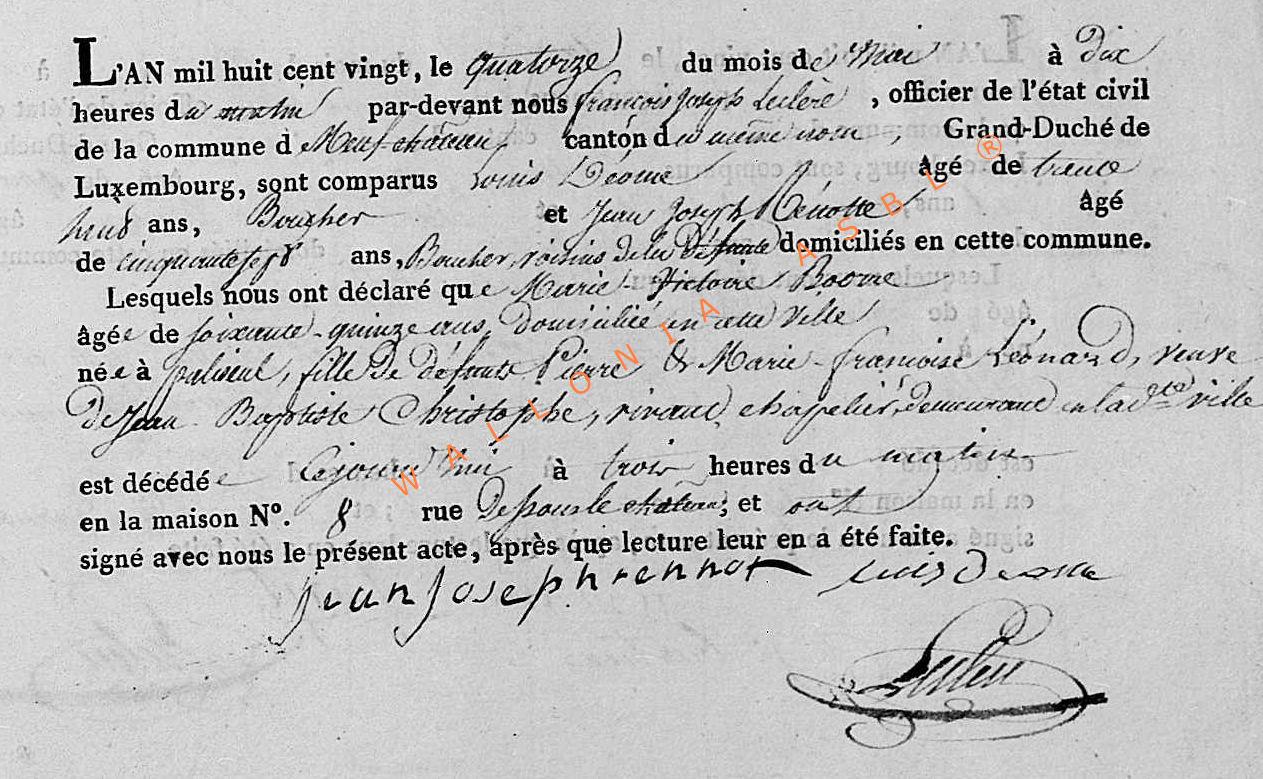 L'AN mil huit cent vingt, le quatorze du mois de Mai à Dix
heures du matin par-devant nous françois joseph Leclere, officier de l'état civil
de la commune d Neufchâteau, canton du même nom, Grand-Duché de
Luxembourg, sont comparus Louis Déome âgé de trente
neuf ans, Boucher et Jean Joseph Renotte âgé
de cinquante sept ans, Boucher, voisins de la Défunte domiciliés en cette commune.
Lesquels nous ont déclaré que Marie-Victoire Boorne
âgée de soixante-quinze ans, domiciliée en cette ville
née à paliseul, fille de défunts Pierre & Marie-françoise Léonard, veuve
De Jean Baptiste Christophe, vivant chapelier, demeurant en la dte ville
est décédée Cejourd'hui à trois heures du matin
en la maison N°. 8 rue Dessous le château; et ont
signé avec nous le présent acte, après que lecture leur en a été faite.
jean joseph rennot Luis Deome
Leclere
WALLONIA ASBL ®